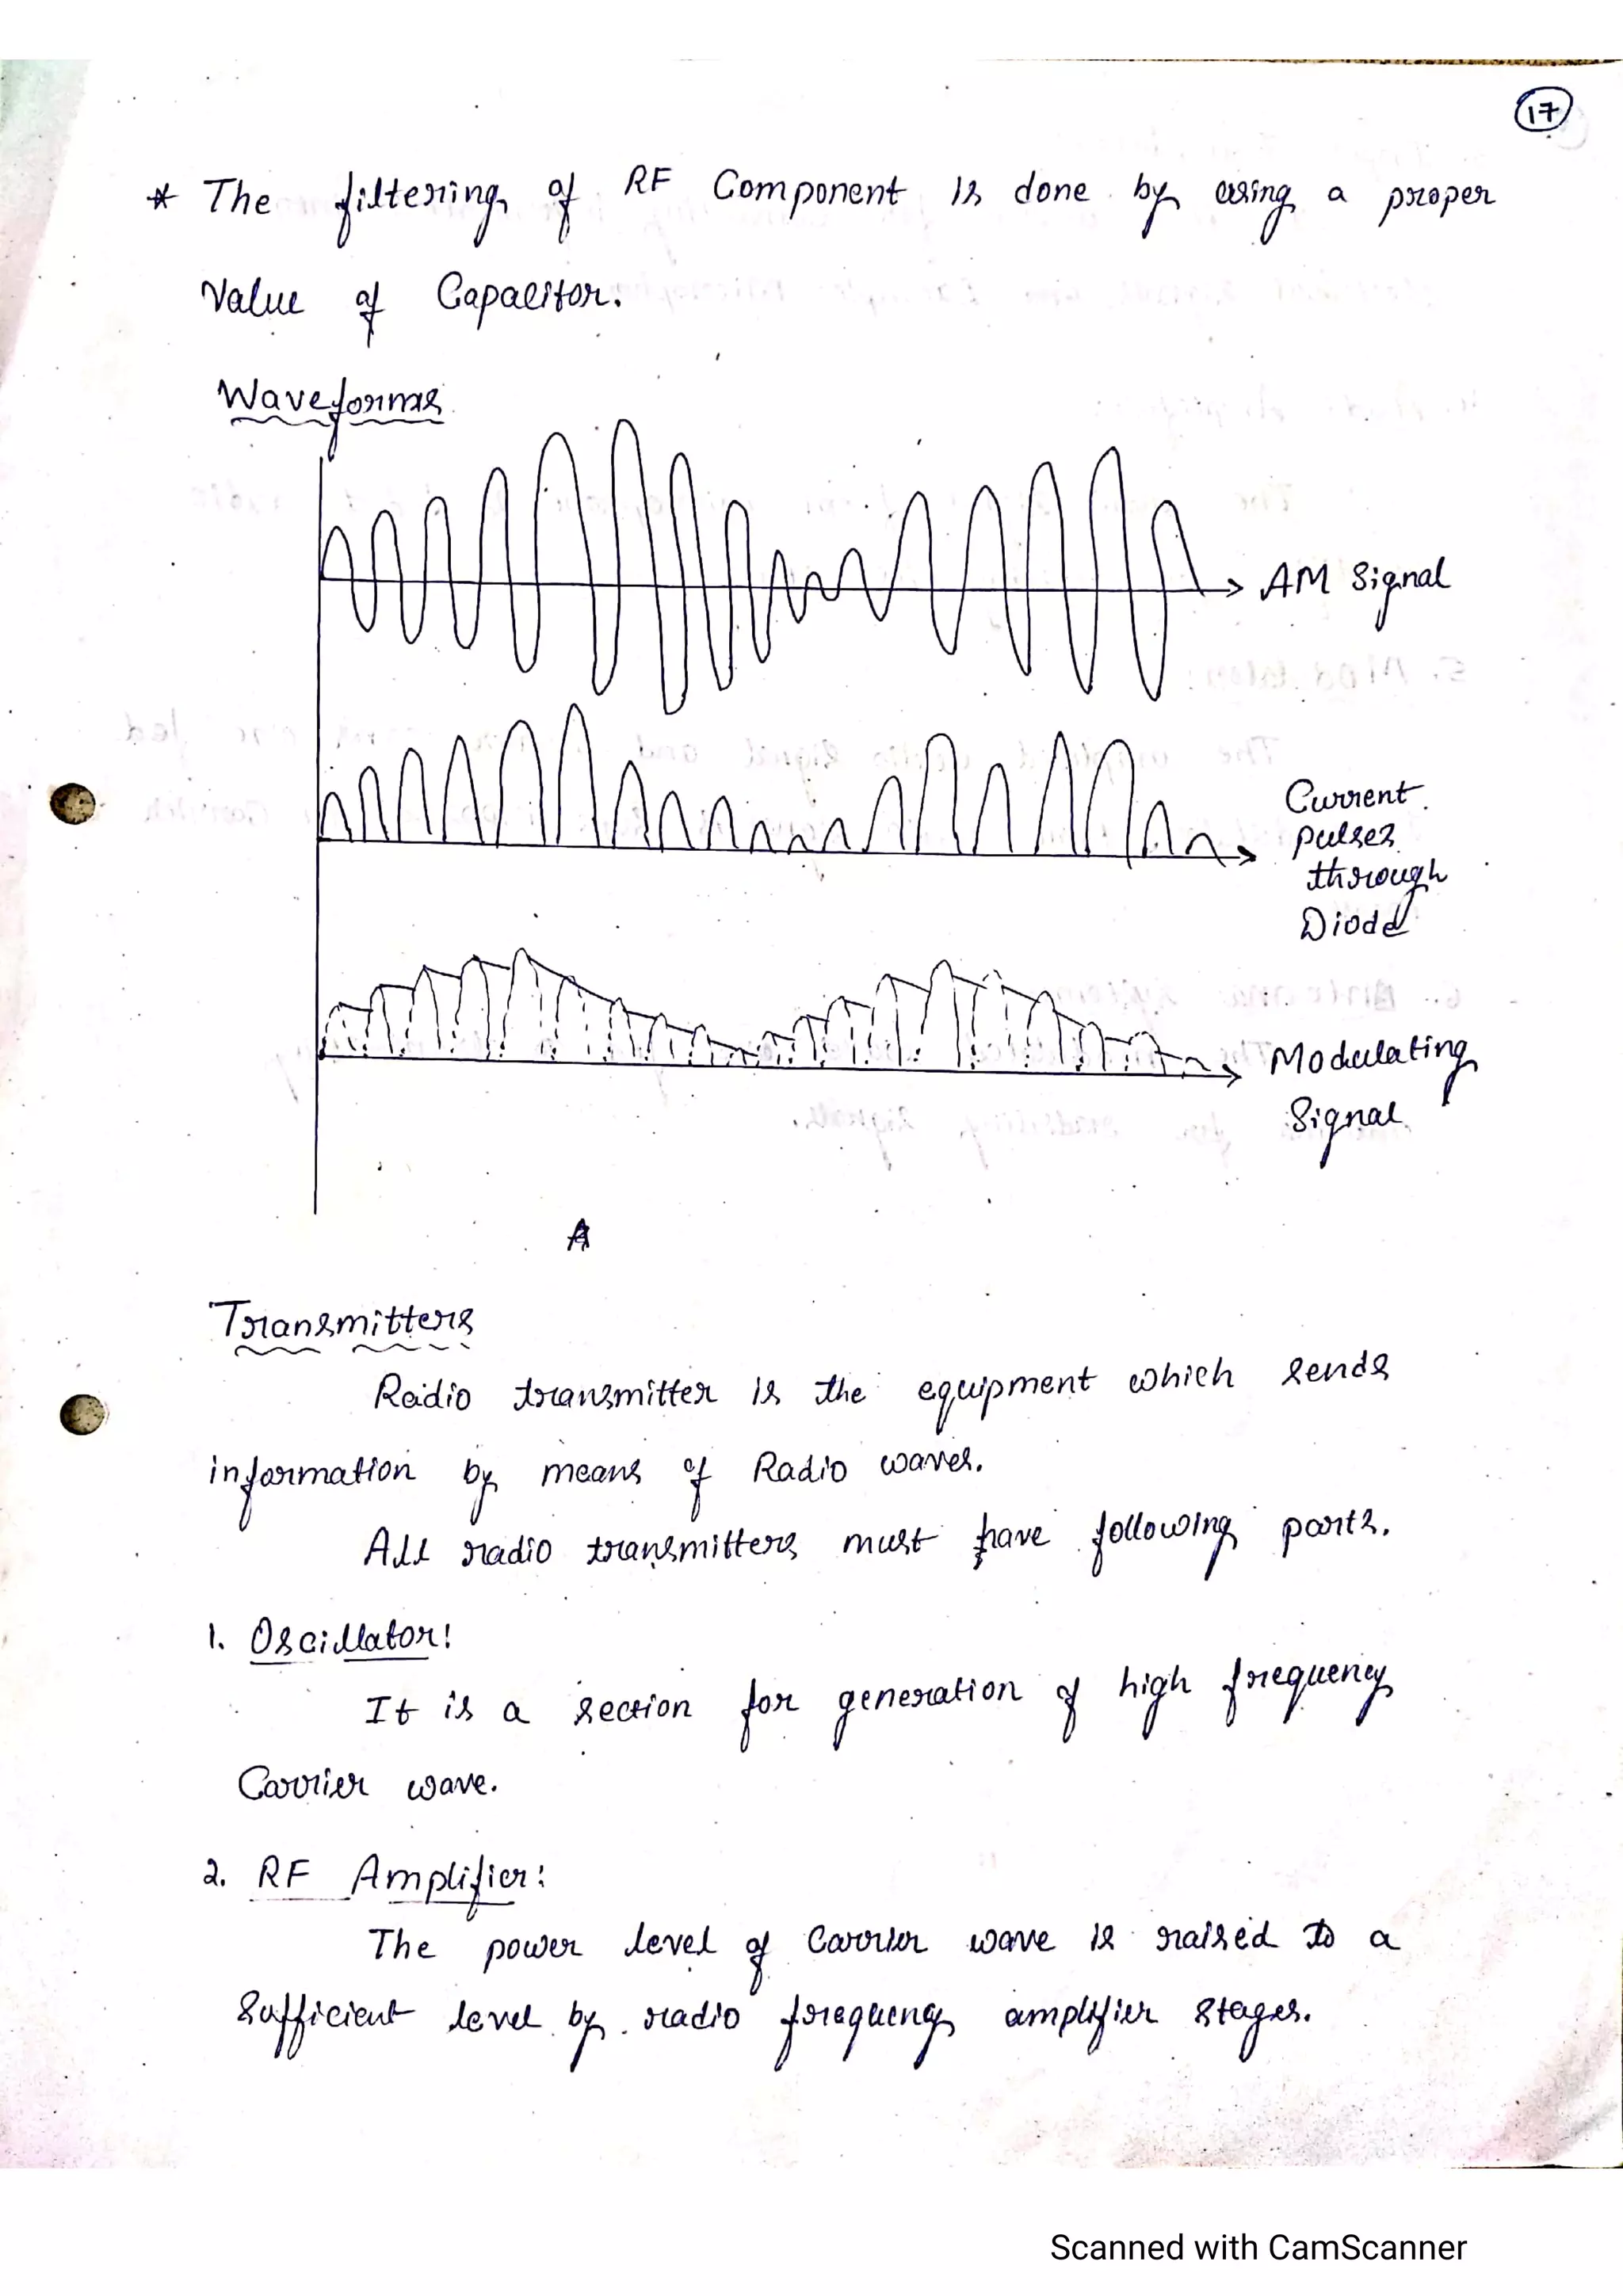 17
* The filtering of RF Component is done by using a proper
Value of Capacitor.
Waveforms
AM Signal
Current
pulses
through
Diode
Modulating
Signal
A
Transmitters
Radio transmitter is the equipment which sends
information by means of Radio waves.
All radio transmitters must have following parts.
1. Oscillator:
It is a section for generation of high frequency
Carrier wave.
2. RF Amplifier:
The power level of Carrier wave is raised to a
Sufficient level by radio frequency amplifier stages.
Scanned with CamScanner